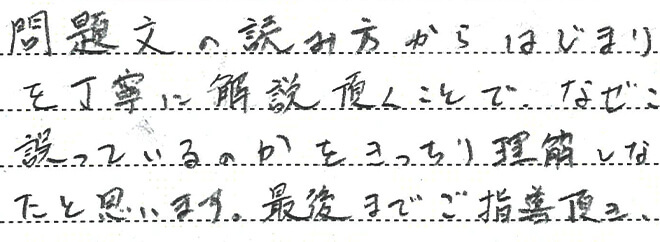 問題文の読み方からはじまり
を丁寧に解説頂くことで、なぜこ
誤っているのかをきっちり理解しな
たと思います。最後までご指導頂き、